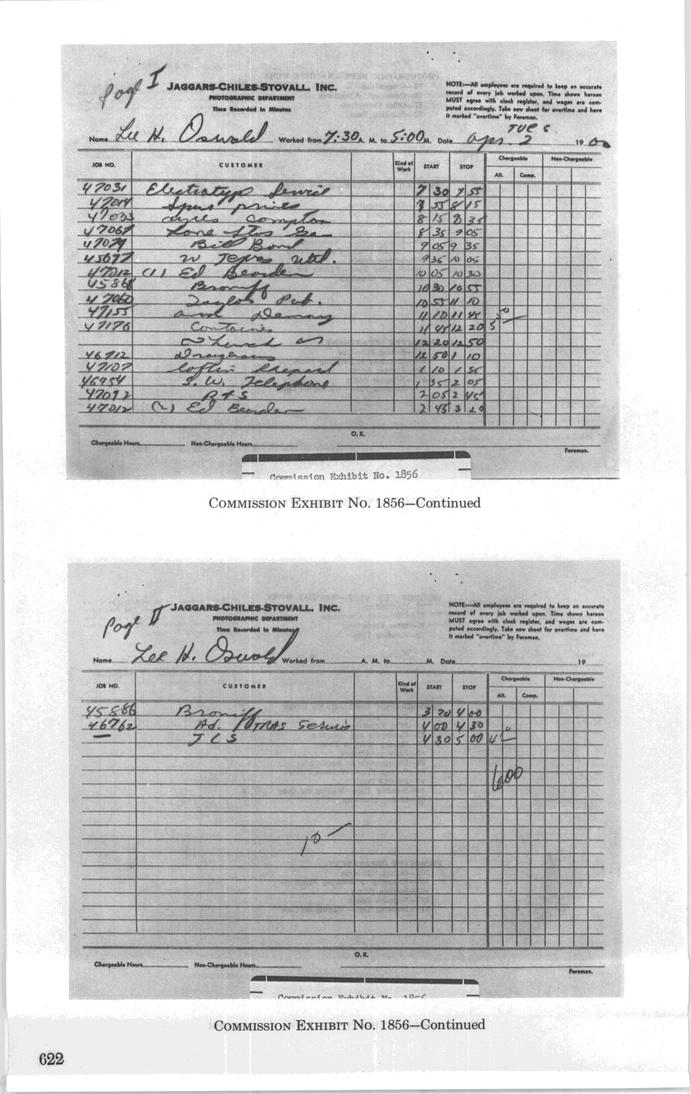 Page I
JAGGARS-CHILES-STOVALL, INC.
PHOTOGRAPHIC DEPARTMENT
Time Recorded in Minutes
NOTE:—All employees are required to keep an accurate
record of every job worked upon. Time shown hereon
MUST agree with clock register, and wages are com-
puted accordingly. Take new sheet for overtime and have
it marked "overtime" by Foreman.
Name Lee H. Oswald Worked from 7:30 A. M. to 5:00 M. Date Tues Apr. 2 19
JOB NO. CUSTOMER Kind of Work START STOP Chargeable Non-Chargeable
Alt. Comp.
47031 Electrotype Service 7 30 7 55
47014 7 55 8 15
47033 Ayres Compton 8 15 8 35
47069 Lone Star 8 35 9 05
47079 Bill Bond 9 05 9 35
45097 W Texas Utl. 9 35 10 05
47012 (1) Ed Bearden 10 05 10 30
45886 Braniff 10 30 10 55
47060 Taylor Pub. 10 55 11 10
47155 11 10 11 45
47176 Container 11 45 12 20
Lunch 12 20 12 50
46712 12 50 1 10
47107 Loftin Shepard 1 10 1 35
46954 S. W. Telephone 1 35 2 05
47092 R + S 2 05 2 45
47012 (2) Ed Bearden 2 45 3 20
O. K.
Chargeable Hours Non-Chargeable Hours
Foreman.
Commission Exhibit No. 1856
COMMISSION EXHIBIT No. 1856—Continued
Page II
JAGGARS-CHILES-STOVALL, INC.
PHOTOGRAPHIC DEPARTMENT
Time Recorded in Minutes
NOTE:—All employees are required to keep an accurate
record of every job worked upon. Time shown hereon
MUST agree with clock register, and wages are com-
puted accordingly. Take new sheet for overtime and have
it marked "overtime" by Foreman.
Name Lee H. Oswald Worked from A. M. to M. Date 19
JOB NO. CUSTOMER Kind of Work START STOP Chargeable Non-Chargeable
Alt. Comp.
45886 Braniff 3 20 4 00
46762 Ad. TRAS Service 4 00 4 30
— J C S 4 30 5 00
600
10 —
O. K.
Chargeable Hours Non-Chargeable Hours
Foreman.
Commission Exhibit No. 1856
COMMISSION EXHIBIT No. 1856—Continued
622